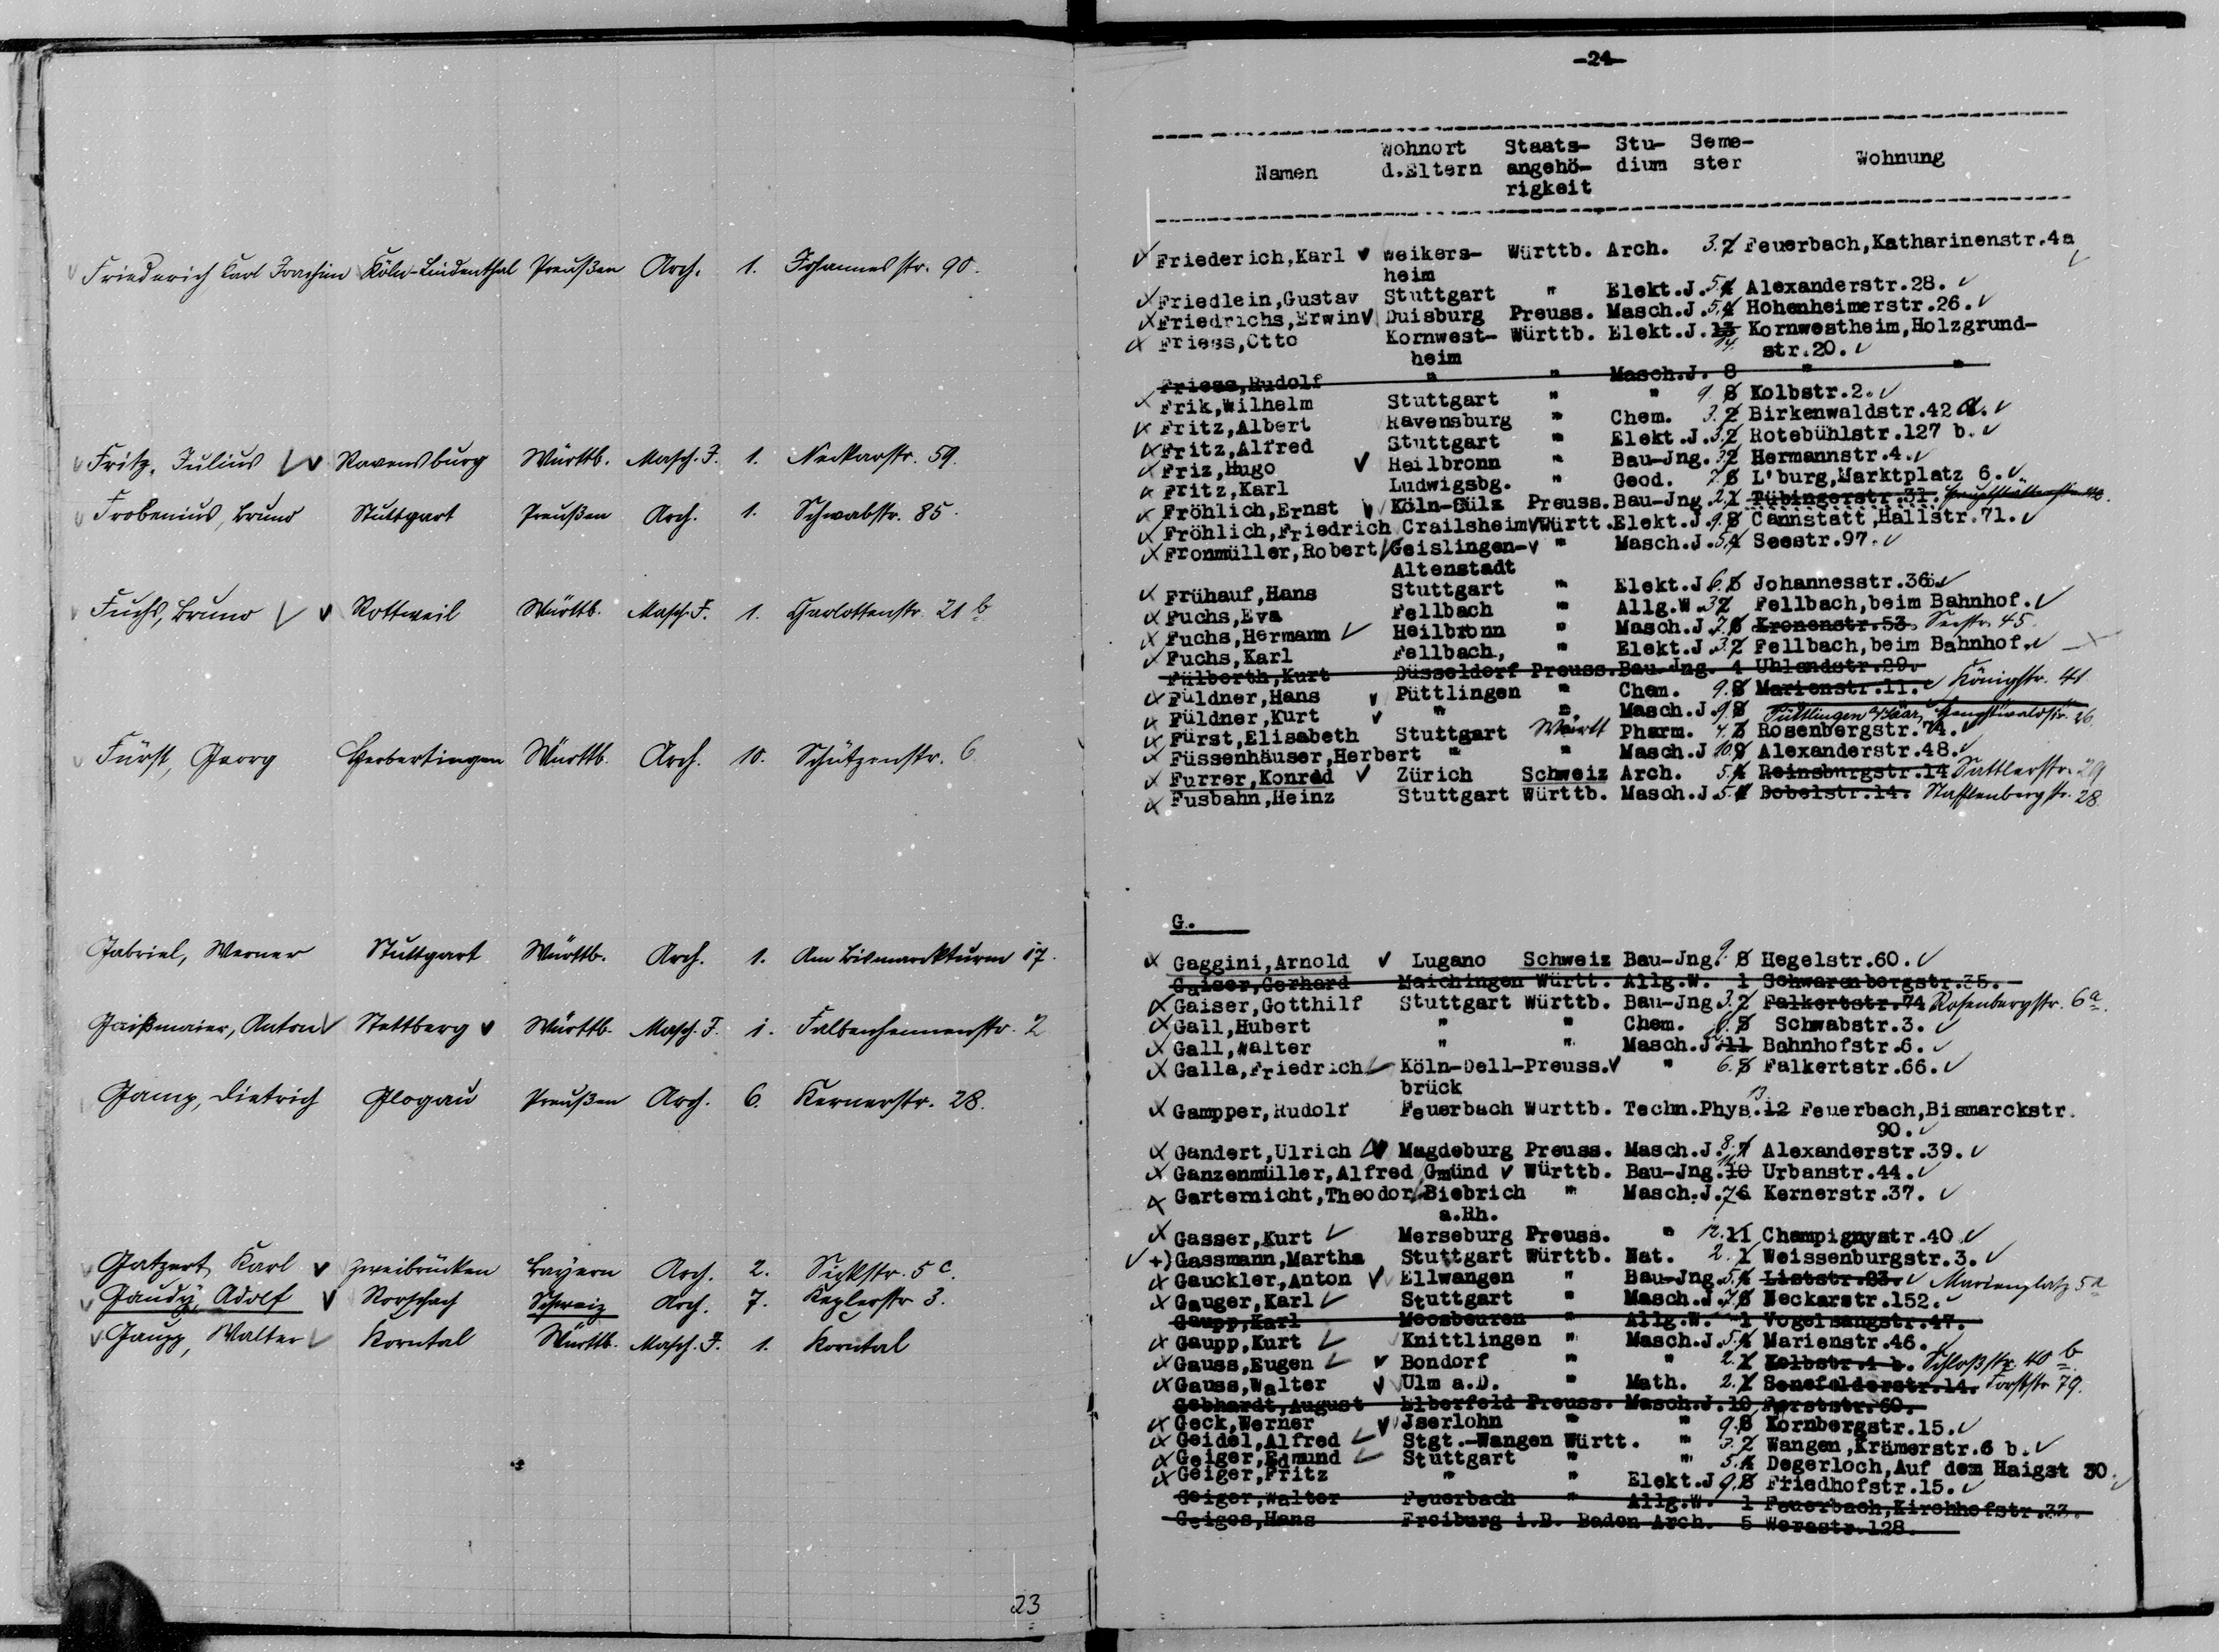 Friederich Karl Joachim Köln-Lindenthal Preußen Arch. 1. Johannesstr. 90.
Fritz, Julius Ravensburg Württb. Masch.J. 1. Neckarstr. 59.
Frobenius, Bruno Stuttgart Preußen Arch. 1. Schwabstr. 85.
Fuchs, Bruno Rottweil Württb. Masch.J. 1. Charlottenstr. 21 b
Fürst, Georg Herbertingen Württb. Arch. 10. Schützenstr. 6
Gabriel, Werner Stuttgart Württb. Arch. 1. Am Bismarckturm 17.
Gaißmaier, Anton Stettberg Württb. Masch.J. 1. Falbenhennenstr. 2
Gamp, Dietrich Glogau Preußen Arch. 6. Kernerstr. 28.
Gatzert, Karl Zweibrücken Bayern Arch. 2. Sickstr. 5 c.
Gaudy, Adolf Rorschach Schweiz Arch. 7. Keplerstr 3.
Gaupp, Walter Korntal Württb. Masch.J. 1. Korntal
23
-24-
Namen Wohnort d.Eltern Staats-angehö-rigkeit Stu-dium Seme-ster Wohnung
Friederich,Karl Weikers- Württb. Arch. 3. 2 Feuerbach,Katharinenstr.4a
heim
Friedlein,Gustav Stuttgart " Elekt.J. 5. 4 Alexanderstr.28.
Friedrichs,Erwin Duisburg Preuss. Masch.J. 5. 4 Hohenheimerstr.26.
Friess,Otto Kornwest- Württb. Elekt.J. 13 14. Kornwestheim,Holzgrund-
heim str.20.
Friess,Rudolf " " Masch.J. 8 " "
Frik,Wilhelm Stuttgart " " 9. 8 Kolbstr.2.
Fritz,Albert Ravensburg " Chem. 3. 2 Birkenwaldstr.42 a.
Fritz,Alfred Stuttgart " Elekt.J. 3. 2 Rotebühlstr.127 b.
Friz,Hugo Heilbronn " Bau-Jng. 3. 2 Hermannstr.4.
Fritz,Karl Ludwigsbg. " Geod. 7. 6 L'burg,Marktplatz 6.
Fröhlich,Ernst Köln-Sülz Preuss. Bau-Jng. 2. 1 Tübingerstr.31.
Fröhlich,Friedrich Crailsheim Württ. Elekt.J. 9. 8 Cannstatt,Hallstr.71.
Fronmüller,Robert Geislingen- " Masch.J. 5. 4 Seestr.97.
Altenstadt
Frühauf,Hans Stuttgart " Elekt.J. 6. 5 Johannesstr.36
Fuchs,Eva Fellbach " Allg.W. 3. 2 Fellbach,beim Bahnhof.
Fuchs,Hermann Heilbronn " Masch.J. 7. 6 Kronenstr.53. Seestr. 45.
Fuchs,Karl Fellbach, " Elekt.J. 3. 2 Fellbach,beim Bahnhof.
Fülberth,Kurt Düsseldorf Preuss. Bau-Jng. 4 Uhlandstr.29.
Füldner,Hans Püttlingen " Chem. 9. 8 Marienstr.11. Königstr. 41
Füldner,Kurt " " Masch.J. 9. 8 Püttlingen a/Saar, Hengstwaldstr. 26.
Fürst,Elisabeth Stuttgart Württ Pharm. 4. 3 Rosenbergstr.74.
Füssenhäuser,Herbert " " Masch.J 10. 9 Alexanderstr.48.
Furrer,Konrad Zürich Schweiz Arch. 5. 4 Reinsburgstr.14 Sattlerstr. 29
Fusbahn,Heinz Stuttgart Württb. Masch.J 5. 4 Dobelstr.14. Stafflenbergstr. 28.
G.
Gaggini,Arnold Lugano Schweiz Bau-Jng. 9. 8 Hegelstr.60.
Gaiser,Gerhard Maichingen Württ. Allg.W. 1 Schwarenbergstr.35.
Gaiser,Gotthilf Stuttgart Württb. Bau-Jng. 3. 2 Falkertstr.74 Rosenbergstr. 6a.
Gall,Hubert " " Chem. 6. 5 Schwabstr.3.
Gall,Walter " " Masch.J. 11 Bahnhofstr.6.
Galla,Friedrich Köln-Dell- Preuss. " 6. 5 Falkertstr.66.
brück
Gampper,Rudolf Feuerbach Württb. Techn.Phys. 13 12 Feuerbach,Bismarckstr.
90.
Gandert,Ulrich Magdeburg Preuss. Masch.J. 8. 7 Alexanderstr.39.
Ganzenmüller,Alfred Gmünd Württb. Bau-Jng. 11 10 Urbanstr.44.
Garternicht,Theodor Biebrich " Masch.J. 7. 6 Kernerstr.37.
a.Rh.
Gasser,Kurt Merseburg Preuss. " 12. 11 Champignystr.40
+)Gassmann,Martha Stuttgart Württb. Nat. 2. 1 Weissenburgstr.3.
Gauckler,Anton Ellwangen " Bau-Jng. 5. 4 Liststr.83. Marienplatz 5a
Gauger,Karl Stuttgart " Masch.J. 7. 6 Neckarstr.152.
Gaupp,Karl Moosbeuren " Allg.W. 1 Vogelsangstr.47.
Gaupp,Kurt Knittlingen " Masch.J. 5. 4 Marienstr.46.
Gauss,Eugen Bondorf " " 2. 1 Kolbstr.4 b. Schloßstr. 40 b
Gauss,Walter Ulm a.D. " Math. 2. 1 Senefelderstr.14. Forststr 79.
Gebhardt,August Elberfeld Preuss. Masch.J. 10 Forststr.60.
Geck,Werner Jserlohn " " 9. 8 Kornbergstr.15.
Geidel,Alfred Stgt.-Wangen Württ. " 3. 2 Wangen,Krämerstr.6 b.
Geiger,Edmund Stuttgart " " 5. 4 Degerloch,Auf dem Haigst 30.
Geiger,Fritz " " Elekt.J 9. 8 Friedhofstr.15.
Geiger,Walter Feuerbach " Allg.W. 1 Feuerbach,Kirchhofstr.33.
Geiges,Hans Freiburg i.B. Baden Arch. 5 Werastr.128.